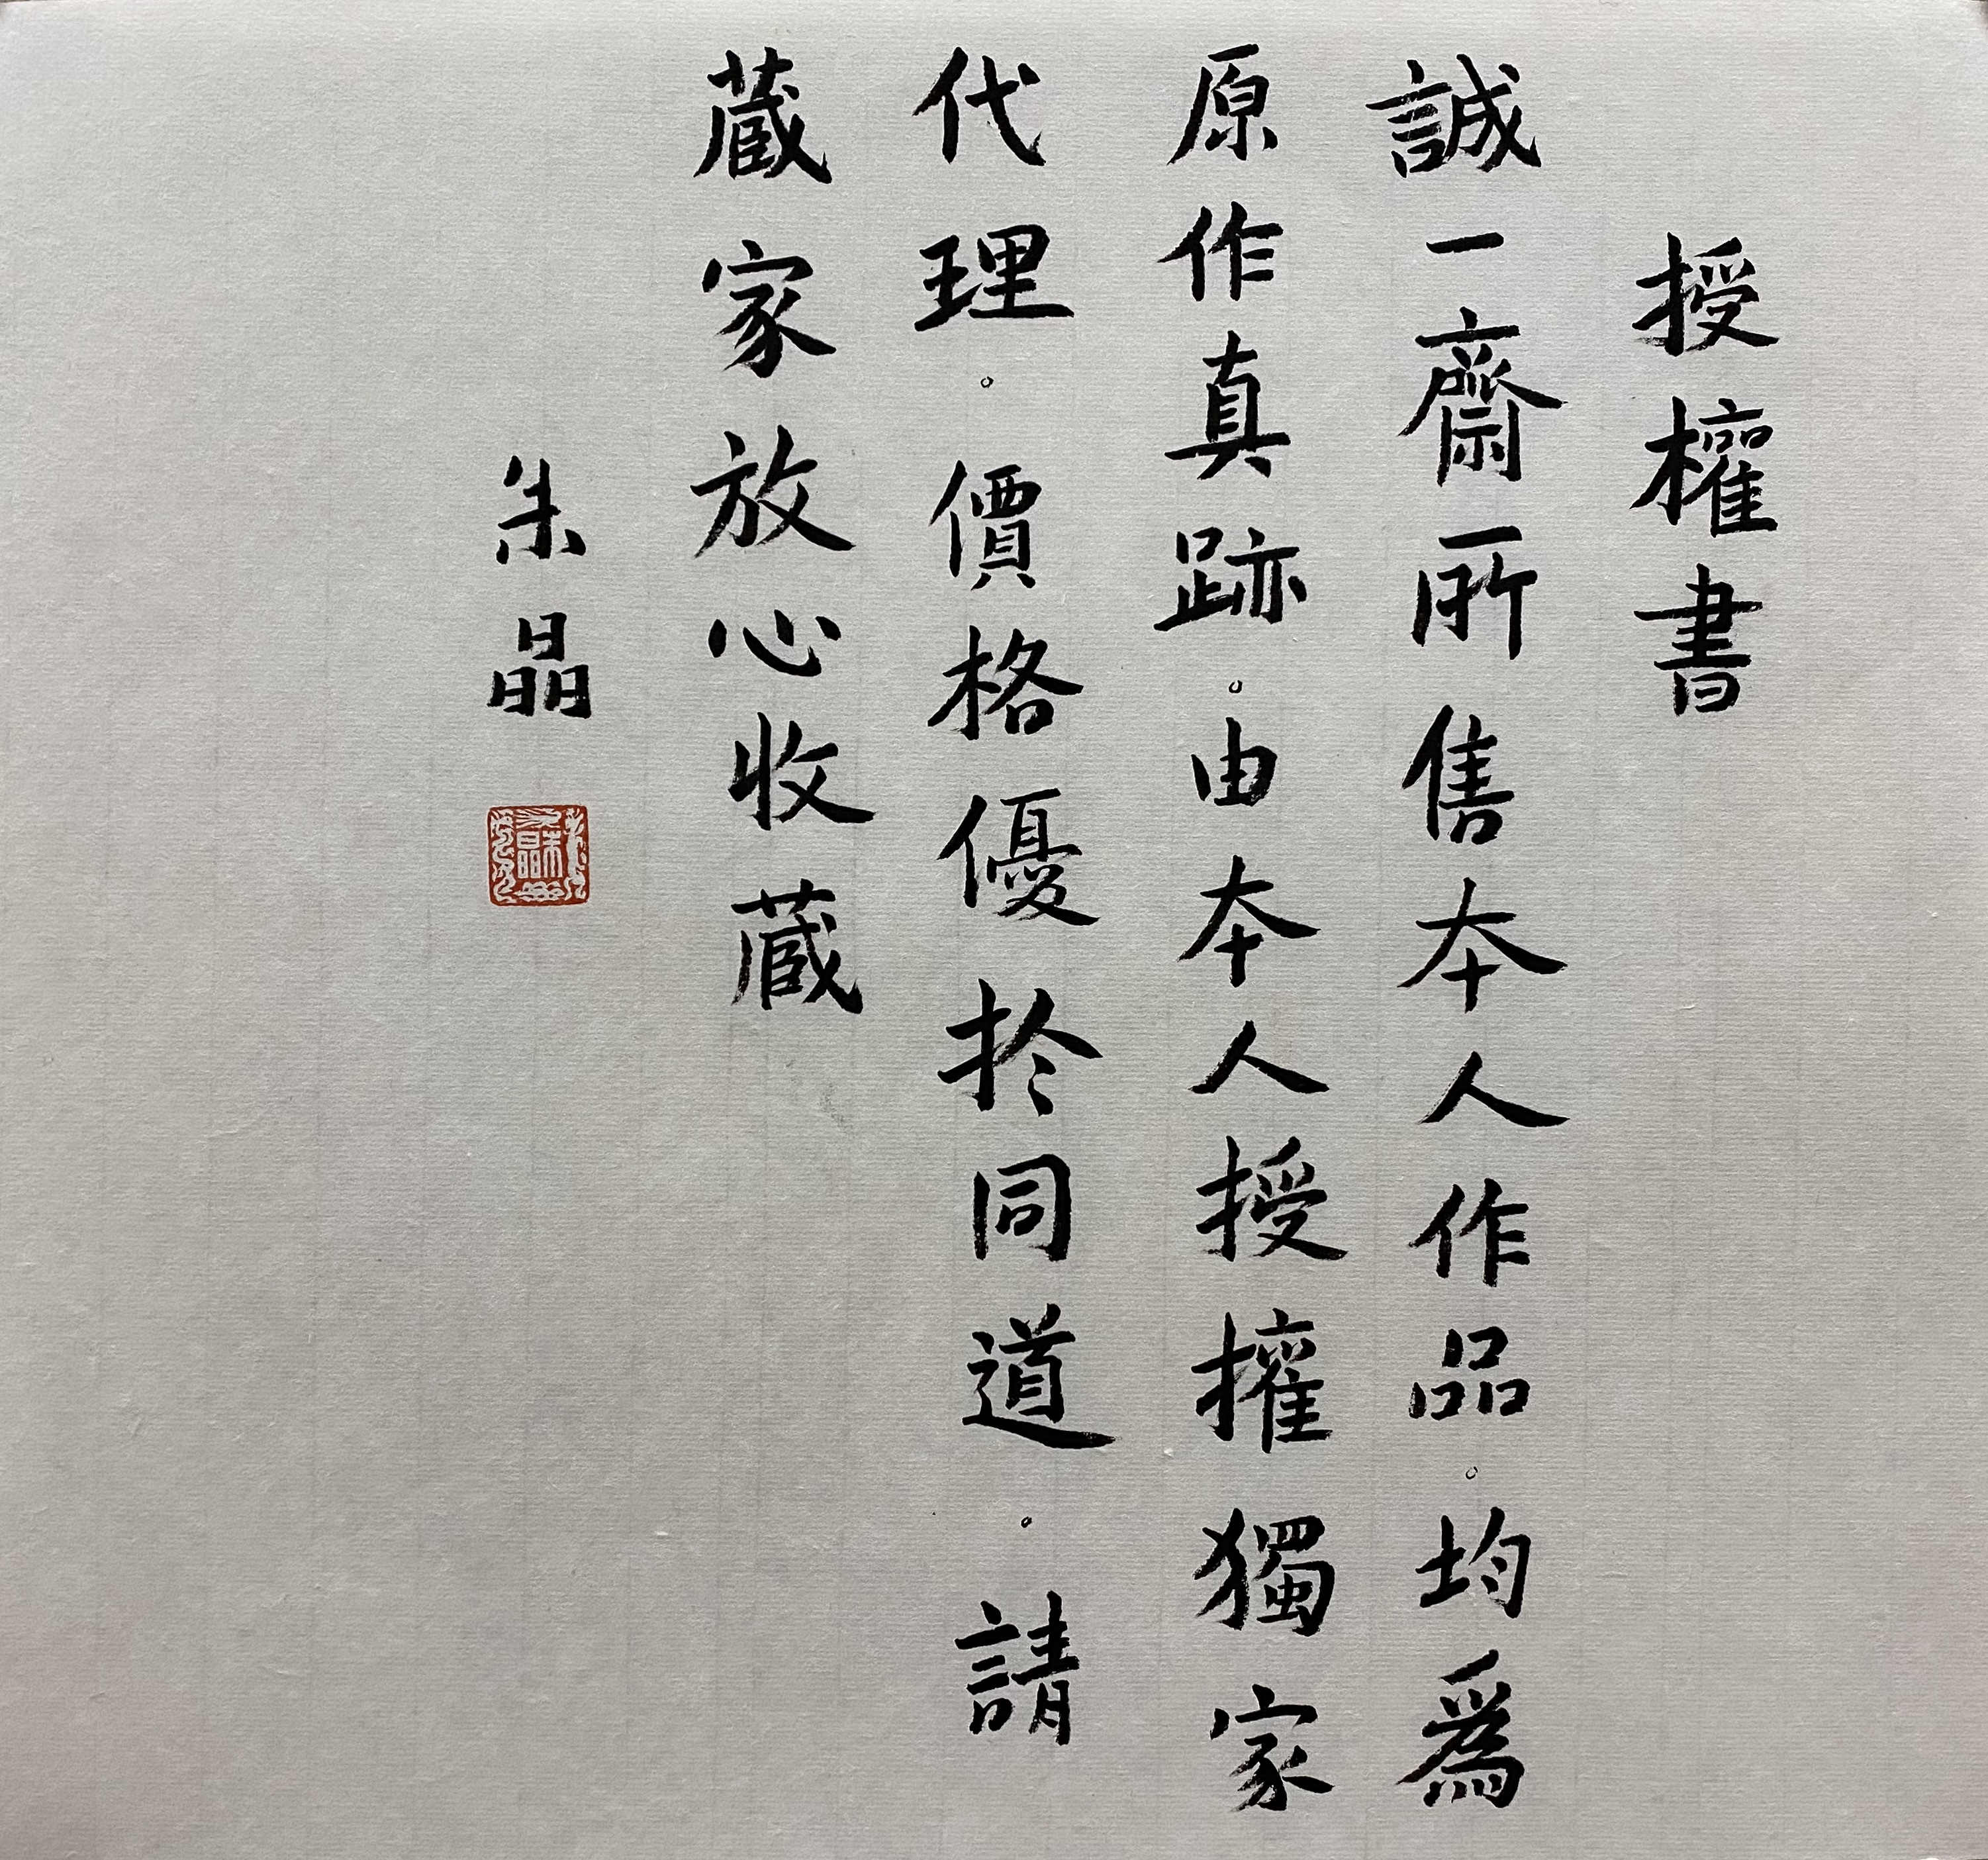 授權書
誠一齋所售本人作品。均爲
原作真跡。由本人授權獨家
代理。價格優於同道。請
藏家放心收藏
朱晶